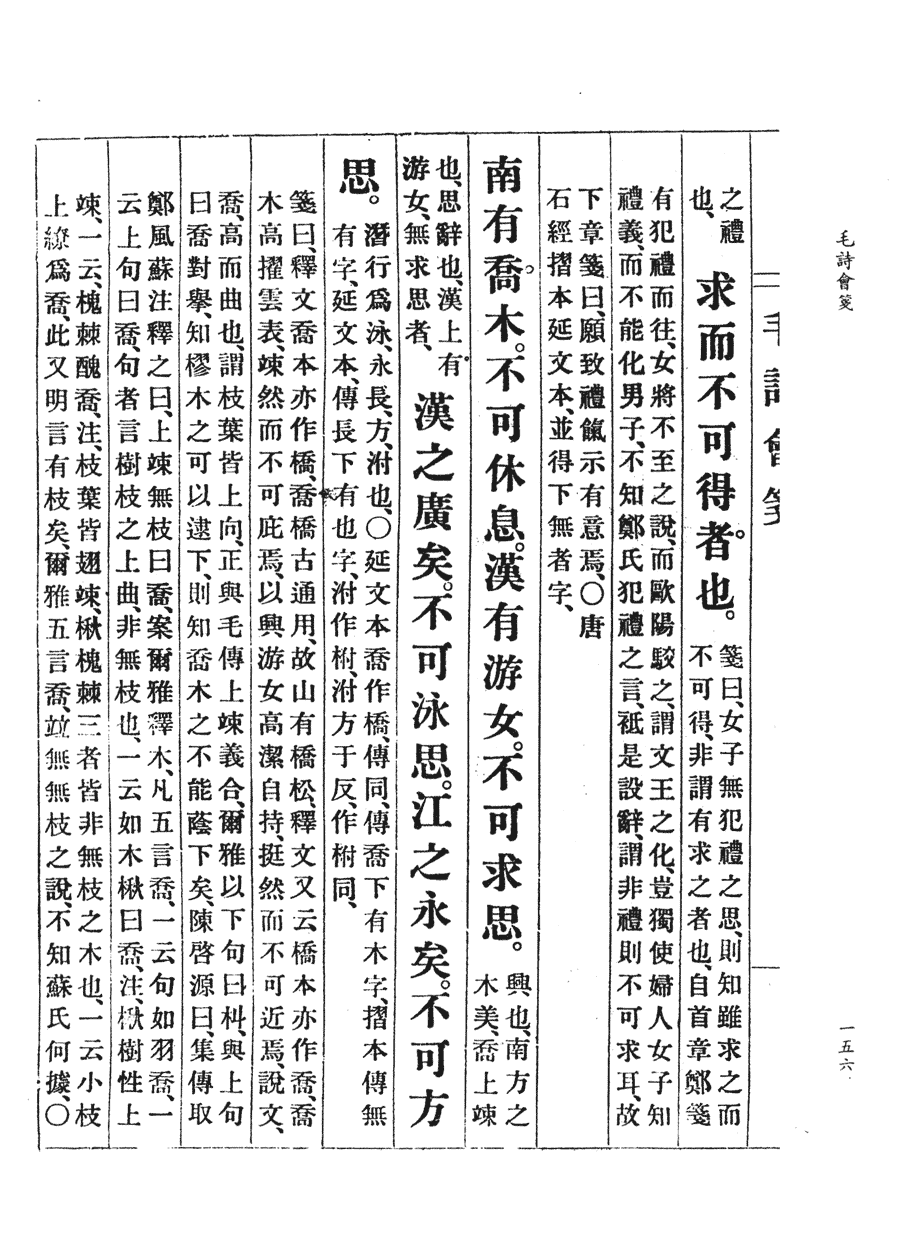 毛詩會箋
一五六
毛詩會箋
之禮
也、
求而不可得者也。
箋曰、女子無犯禮之思、則知雖求之而
不可得、非謂有求之者也、自首章鄭箋
有犯禮而往、女將不至之說、而歐陽駁之、謂文王之化、豈獨使婦人女子知
禮義、而不能化男子、不知鄭氏犯禮之言、袛是設辭、謂非禮則不可求耳、故
下章箋曰、願致禮餼示有意焉、〇唐
石經摺本延文本、並得下無者字、
南有喬木。不可休息。漢有游女。不可求思。
興也、南方之
木美、喬上竦
也、思辭也、漢上有
游女、無求思者、
漢之廣矣。不可泳思。江之永矣。不可方
思。
潛行爲泳、永長、方、泭也、〇延文本喬作橋、傳同、傳喬下有木字、摺本傳無
有字、延文本、傳長下有也字、泭作柎、泭方于反、作柎同、
箋曰、釋文喬本亦作橋、喬橋古通用、故山有橋松、釋文又云、橋本亦作喬、喬
木高擢雲表、竦然而不可庇焉、以興游女高潔自持、挺然而不可近焉、說文、
喬、高而曲也、謂枝葉皆上向、正與毛傳上竦義合、爾雅以下句曰朻、與上句
曰喬對擧、知樛木之可以逮下、則知喬木之不能蔭下矣、陳啓源曰、集傳取
鄭風蘇注釋之曰、上竦無枝曰喬、案爾雅釋木、凡五言喬、一云句如羽喬、一
云上句曰喬、句者言樹枝之上曲、非無枝也、一云如木楸曰喬、注、楸樹性上
竦、一云、槐棘醜喬、注、枝葉皆翅竦、楸槐棘三者皆非無枝之木也、一云小枝
上繚爲喬、此又明言有枝矣、爾雅五言喬、竝無無枝之說、不知蘇氏何據、〇